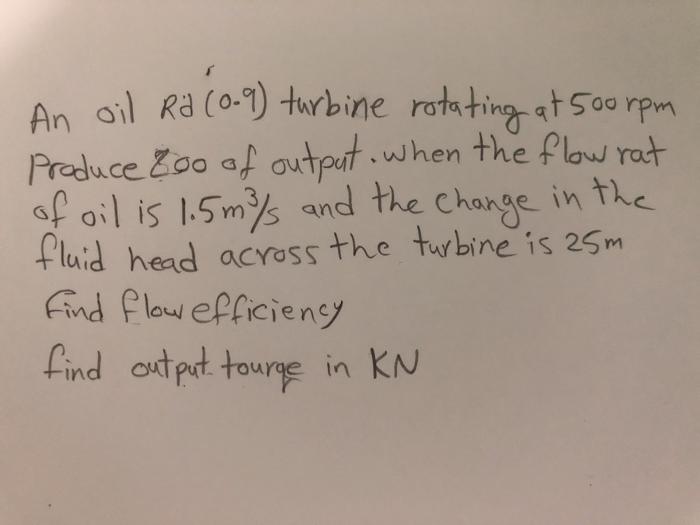 An oil Rd (0.9) turbine rotating at 500 rpm
Produce 200 of output. when the flow rat
of oil is 1.5 m³/s and the change in the
fluid head across the turbine is 25m
find flow efficiency
find output tourqe in KN